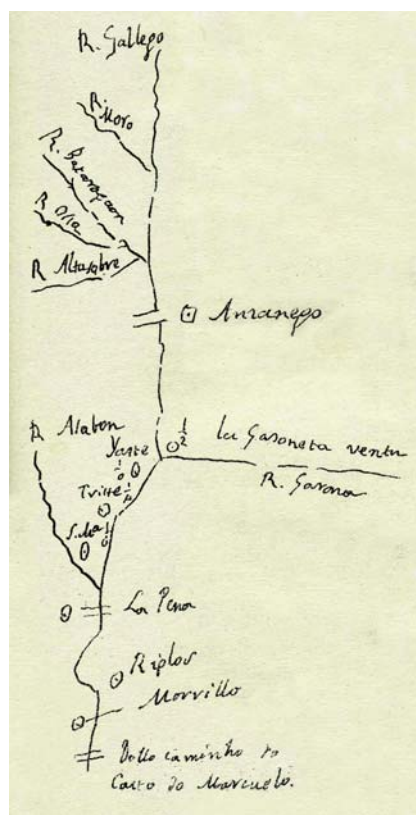 R. Gallego
R. Moro
R. Bataragaon
R Olia
R Altasobre
Anzanego
R Alabon
1/2
La Garoneta venta
R. Garona
Yaste
Triste
S. Ma
La Pena
Riplos
Morvillo
Dello caminho do
Casto do Marcuelo.